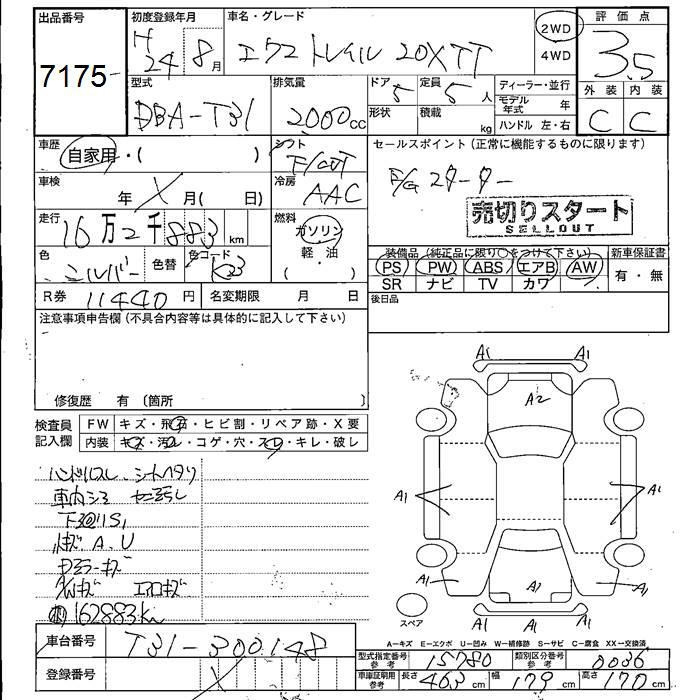 出品番号
7175
初度登録年月
H 24 8月
車名・グレード
エクストレイル 20XTT
2WD
4WD
評価点
3.5
外装 内装
C C
型式
DBA-T31
排気量
2000cc
ドア 5
定員 5人
形状
積載 kg
ディーラー・並行
モデル年式 年
ハンドル 左・右
車歴
自家用・( )
シフト
F/CVT
セールスポイント(正常に機能するものに限ります)
売切りスタート
SELLOUT
車検
年 X 月( 日)
冷房
AAC
走行
16万2千883km
燃料
ガソリン
・軽・油
( )
装備品(純正品に限り○をつけて下さい)
PS PW ABS エアB AW
SR ナビ TV カワ
新車保証書
有・無
色
シルバー
色替
色コード
K23
R券 11440円
名変期限 月 日
後日品
注意事項申告欄(不具合内容等は具体的に記入して下さい)
修復歴 有(箇所 )
検査員記入欄
FW キズ・飛石・ヒビ割・リペア跡・X要
内装 キズ・汚レ・コゲ・穴・スレ・キレ・破レ
ハンドルスレ シートヘタリ
下回りS1
A、U
エアロキズ
162883km
A1 A1
A2
A1 A1
A1 A1 A1
A1 A1 A1
スペア
A-キズ E-エクボ U-凹み W-補修跡 S-サビ C-腐食 XX-交換済
車台番号
T31-300148
登録番号
X
型式指定番号 参考 15780
類別区分番号 参考 0036
車庫証明用 参考 長さ 463cm 幅 179cm 高さ 170cm